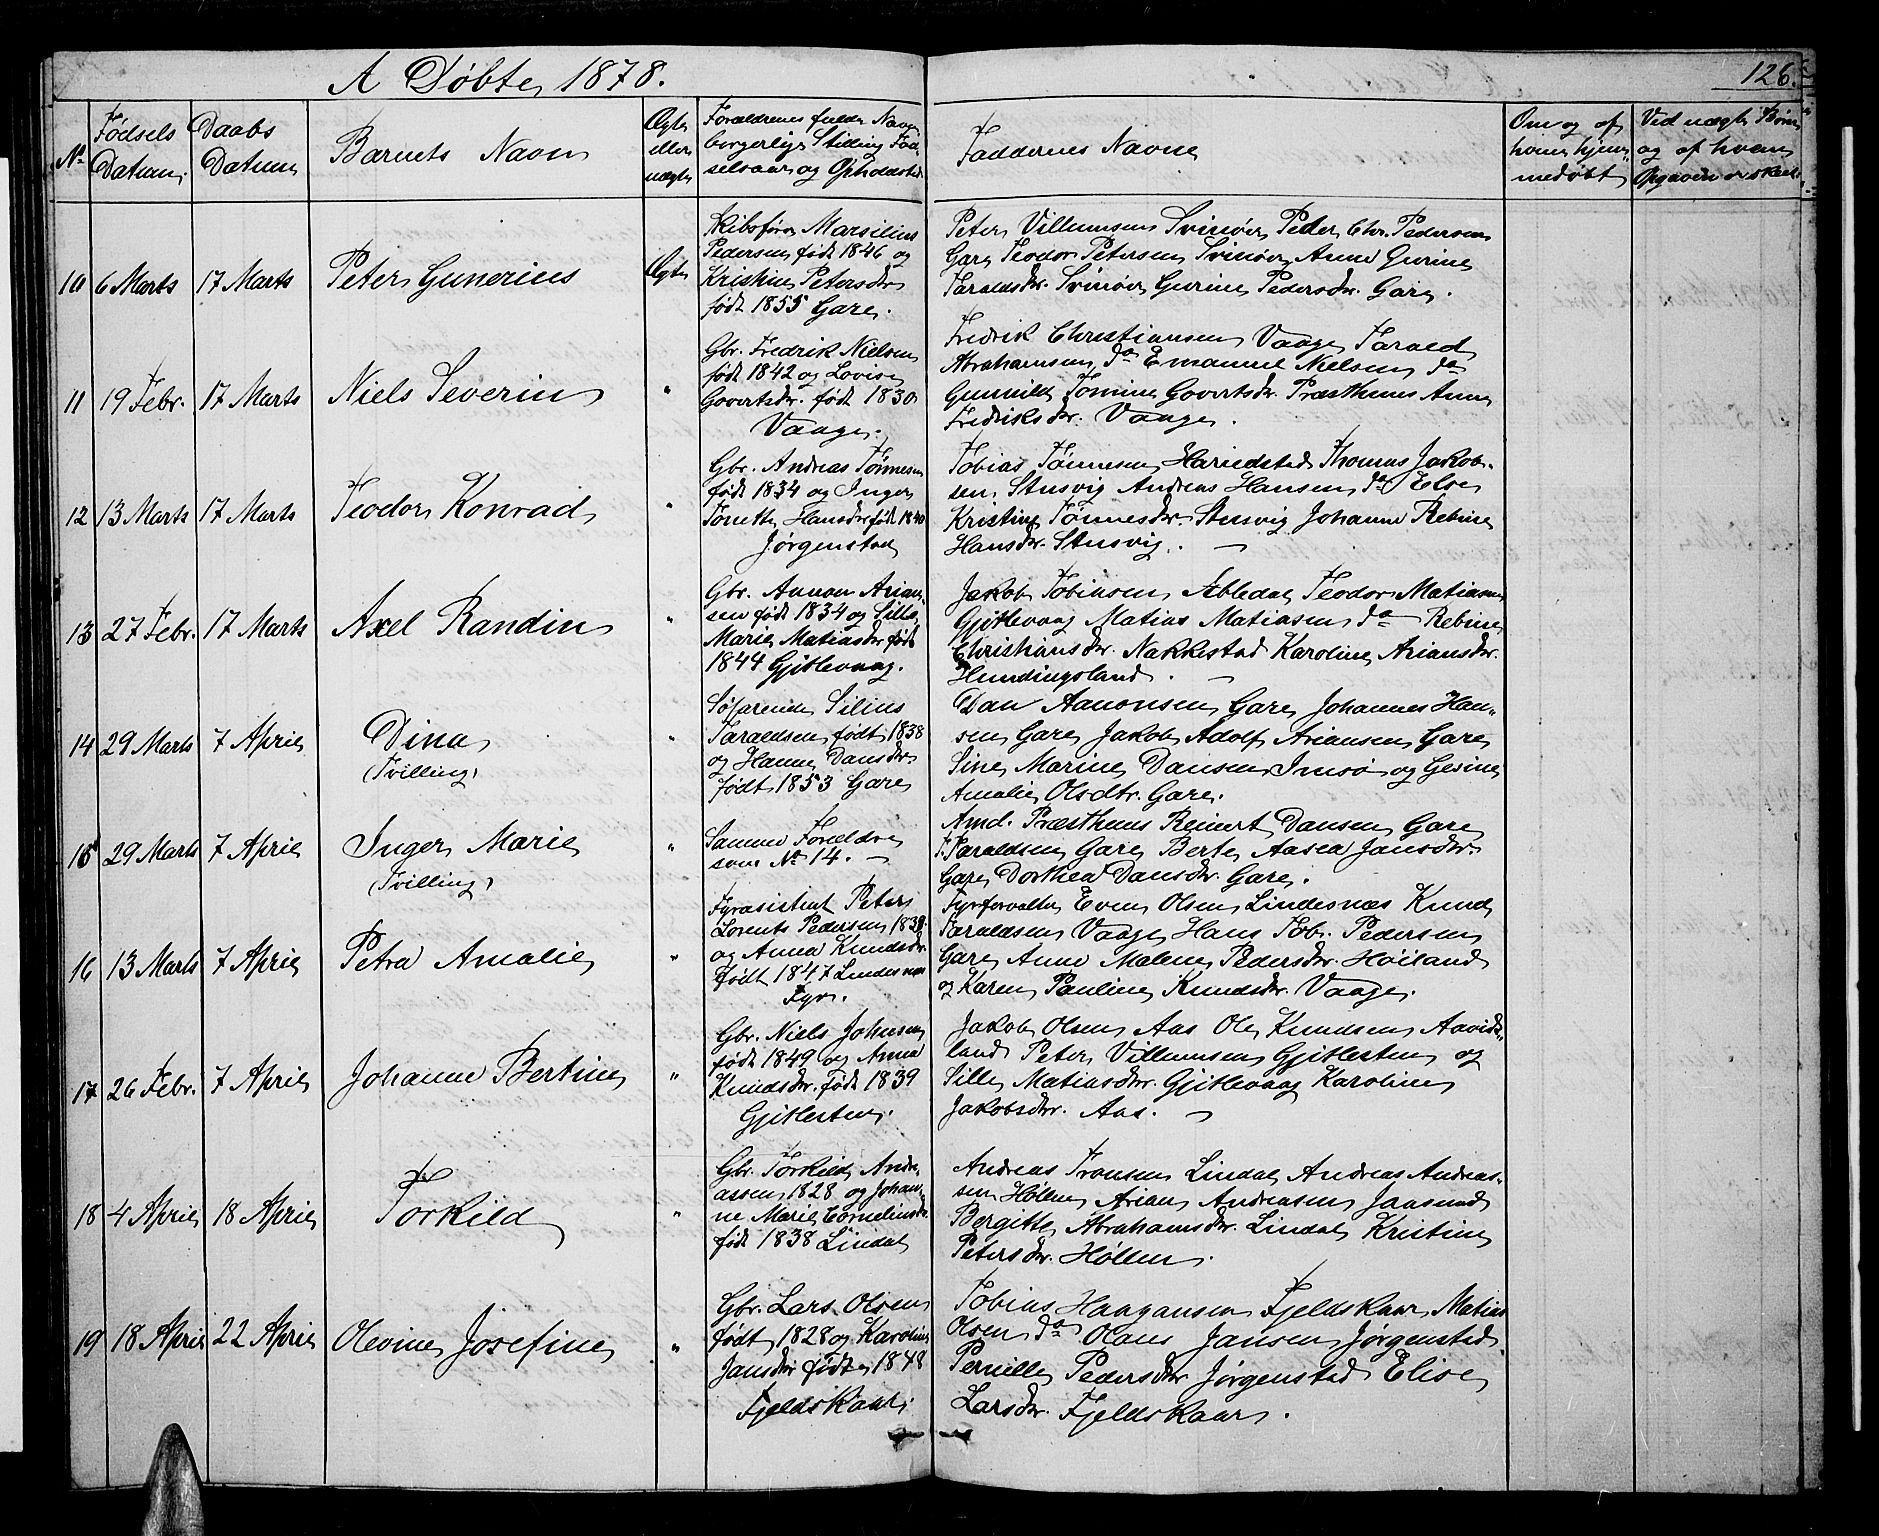 A Døbte 1878.
126.
No
Fødsels Datum
Daabs Datum
Barnets Navn
Ægte eller uægte
Forældrenes fulde Navn borgerlige Stilling Fødselsaar og Opholdsted
Faddernes Navne
Om og af hvem hjemmedøbt
Ved uægte Børn og af hvem Opgaven er skeet
10 6 Marts 17 Marts Peter Gunerius Ægte
Skibsfører Marsilius
Pedersen født 1846 og
Kristine Petersdr
født 1855 Gare.
Peter Villumsen Svinør Peder Chr. Pedersen
Gare Teodor Petersen Svinør Anne Gurine
Taraldsdr. Svinør Gurine Pedersdr. Gare.
11 19 Febr. 17 Marts Niels Severin "
Gbr. Fredrik Nielsen
født 1842 og Lovise
Govertsdr. født 1830
Vaage.
Fredrik Christiansen Vaage Tarald
Abrahamsen do Emanuel Nielsen do
Gunnild Tomine Govertsdr. Præsthuus Anne
Fredriksdr. Vaage.
12 13 Marts 17 Marts Teodor Konrad "
Gbr. Andreas Tønnesen
født 1834 og Inger
Tonette Hansdr født 1840
Jørgenstad
Tobias Tønnesen Harildstad Thomas Jakob-
sen Stusvig Andreas Hansen do Else
Kristine Tønnesdr. Stusvig Johanne Rebine
Hansdr. Stusvig.
13 27 Febr. 17 Marts Axel Randin "
Gbr. Aanon Arian-
sen født 1834 og Sille
Marie Matiasdr født
1844 Gjitlevaag.
Jakob Tobiasen Abledal Teodor Matiasen
Gjitlevaag Matias Matiasen do Rebine
Christiansdr. Nakkestad Karoline Ariansdr.
Hundingsland.
14 29 Marts 7 April Dina "
(Tvilling)
Søfarende Silius
Taraldsen født 1838
og Hanne Dansdr
født 1853 Gare
Dan Aanonsen Gare Johannes Han-
sen Gare Jakob Adolf Ariansen Gare
Sine Marine Dansen Imsø og Gesine
Amalie Olsdtr. Gare.
15 29 Marts 7 April Inger Marie "
(Tvilling)
Samme Forældre
som No 14.
Amd. Præsthuus Reinert Dansen Gare
T. Taraldsen Gare Berte Aasea Jansdr.
Gare Dorthea Dansdr. Gare.
16 13 Marts 7 April Petra Amalie "
Fyrasistent Peter
Lorents Pedersen 1839
og Anna Knudsdr.
født 1847 Lindesnæs
Fyr.
Fyrforvalter Even Olsen Lindesnæs Knud
Taraldsen Vaage Hans Tob. Pedersen
Gare Anne Malene Pedersdr. Høiland
og Karen Pauline Knudsdr. Vaage.
17 26 Febr. 7 April Johanne Bertine "
Gbr. Niels Johnsen
født 1849 og Anna
Knudsdr. født 1839
Gjitlesten.
Jakob Olsen Aas Ole Knudsen Aavids-
land Peter Villumsen Gjitlesten og
Sille Matiasdr. Gjitlevaag Karoline
Jakobsdr. Aas.
18 4 April 18 April Torkild "
Gbr. Torkild Andre-
assen 1828 og Johan-
ne Marie Corneliusdr.
født 1838 Lindal
Andreas Tronsen Lindal Andreas Andreas-
sen Høllen Arian Andreasen Jaasund
Bergitte Abrahamsdr. Lindal Kristine
Petersdr. Høllen.
19 18 April 22 April Olevine Josefine "
Gbr. Lars Olsen
født 1828 og Karoline
Jansdr født 1848
Fjeldskaar.
Tobias Haagansen Fjeldskaar Matias
Olsen do Olaus Jansen Jørgenstad
Pernille Pedersdr Jørgenstad Elise
Larsdr. Fjeldskaar.